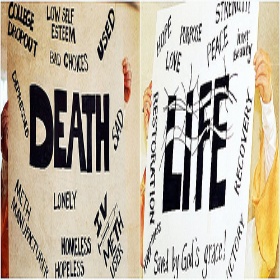 COLLEGE
DROPOUT
LOW SELF
ESTEEM
USED
BAD CHOICES
DEPRESSED
DEATH
SAD
LONELY
METH
MANUFACTURER
HOMELESS
HOPELESS
IV
METH
USER
HOPE
PURPOSE
STRENGTH
LOVE
PEACE
RESTORATION
LIFE
RECOVERY
Saved by God's grace!
VICTORY